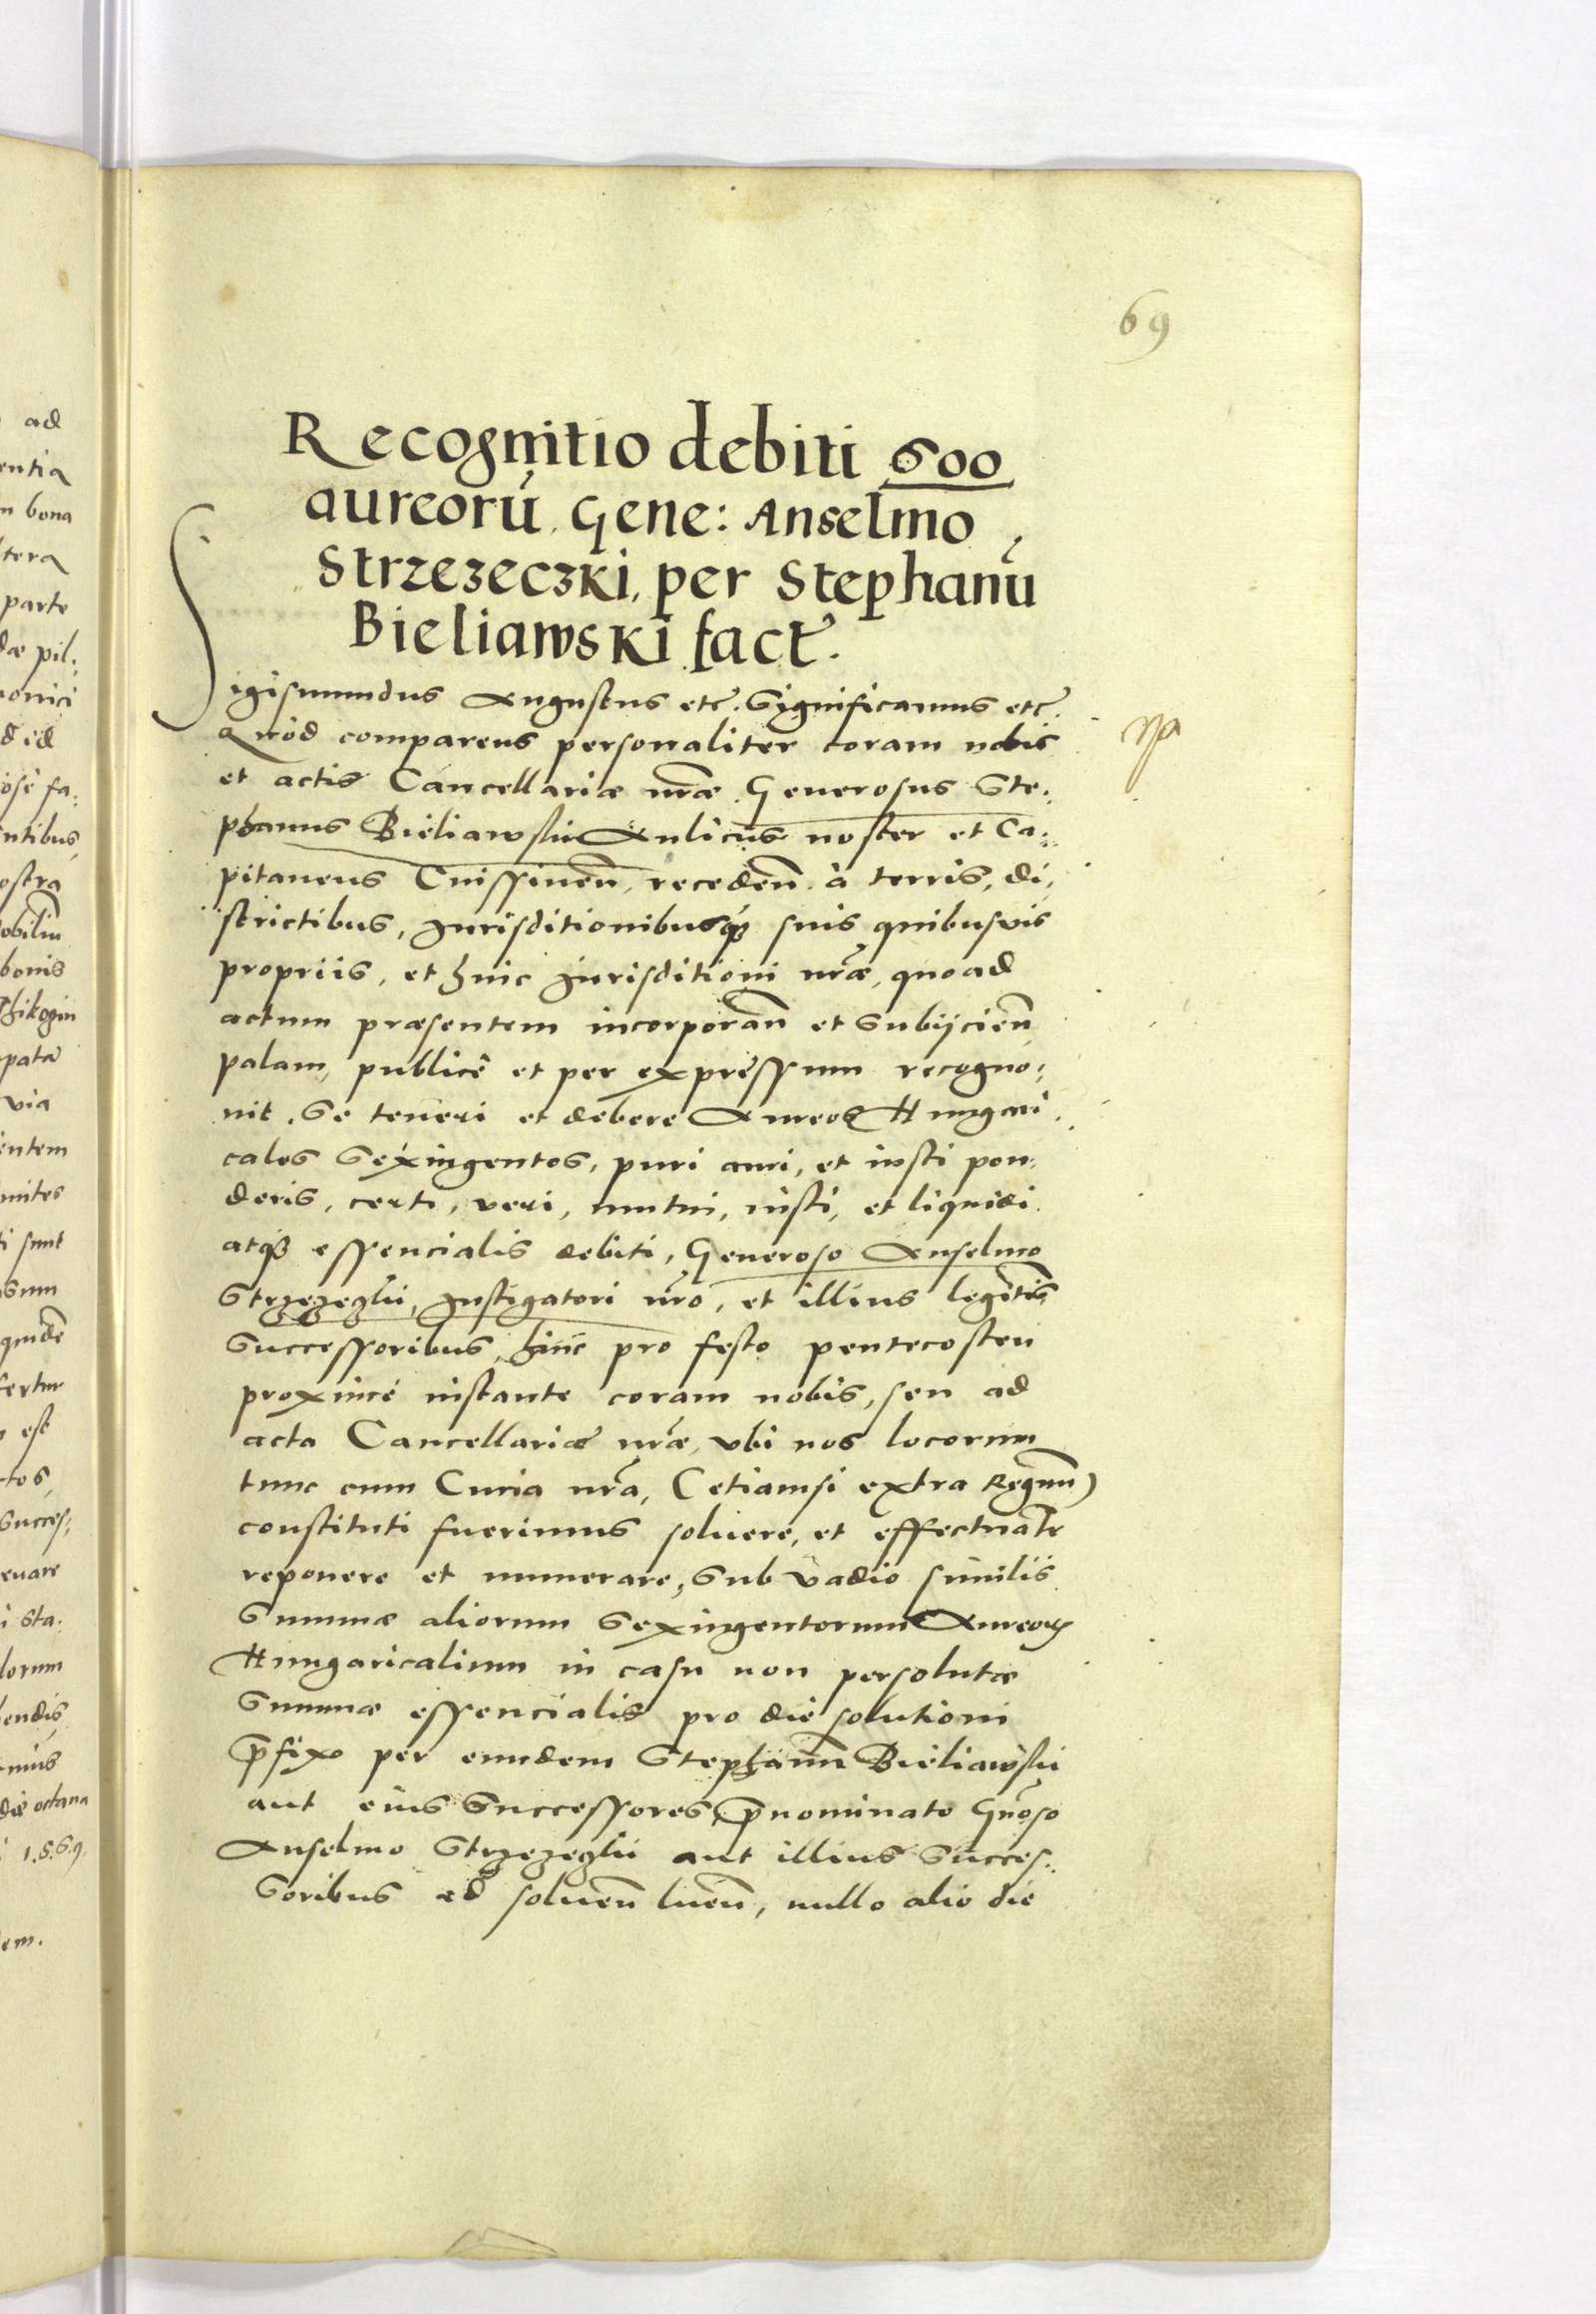 69
Recognitio debiti 600
aureorũ. Gene: Anselmo
Strzezeczki, per Stephanũ
Bieliawski fact.
Sigismundus Augustus etc. Significamus etc.
Quòd comparens personaliter coram nobis
et actis Cancellariæ nr̃æ Generosus Ste:
phanus Bieliawski Aulicus noster et Ca:
pitaneus recedeñ. à terris, di,
strictibus, Jurisditionibusq̃ suis quibusvis
propriis, et huic Jurisditioni nr̃æ, quoad
actum præsentem incorporañ et Subijcieñ
palam, publicè et per expressum recogno:
uit. Se teneri et debere Aureos Hungari
cales Sexingentos, puri auri, et iusti pon:
deris, certi, veri, mutui, iusti, et liquidi
atq̃ essencialis debiti, Generoso Anselmo
Strzezeczki, Instigatori nr̃o, et illius legitĩs
Successoribus, hinc pro festo pentecosten
proximè instante coram nobis, seu ad
acta Cancellariæ nr̃æ, vbi nos locorum
tunc cum Curia nr̃a, (etiamsi extra Regnum)
constituti fuerimus soluere, et effectualr
reponere et numerare, Sub vadio similis
Summæ aliorum Sexingentorum Aureorꝝ
Hungaricalium in casu non persolutæ
Summæ essencialis pro die solutioni
p̃fixo per eundem Stephanũ Bieliawski
aut eius Successores, p̃nominato Gñoso
Anselmo Strzezeczki aut illius Succes:
Soribus ad solueñ lueñ, nullo alio die
ad
entia
m bona
tera
parte
dæ pil:
monici
d id
iosè fa:
ntibus
ostra
obiliũ
bonis
via
entem
mites
ti sunt
sum
quidẽ
fertur
est
tos,
Succes:
euare
i Sta:
lorum
endis
mus
die octaua
1.5.6.9.
em.